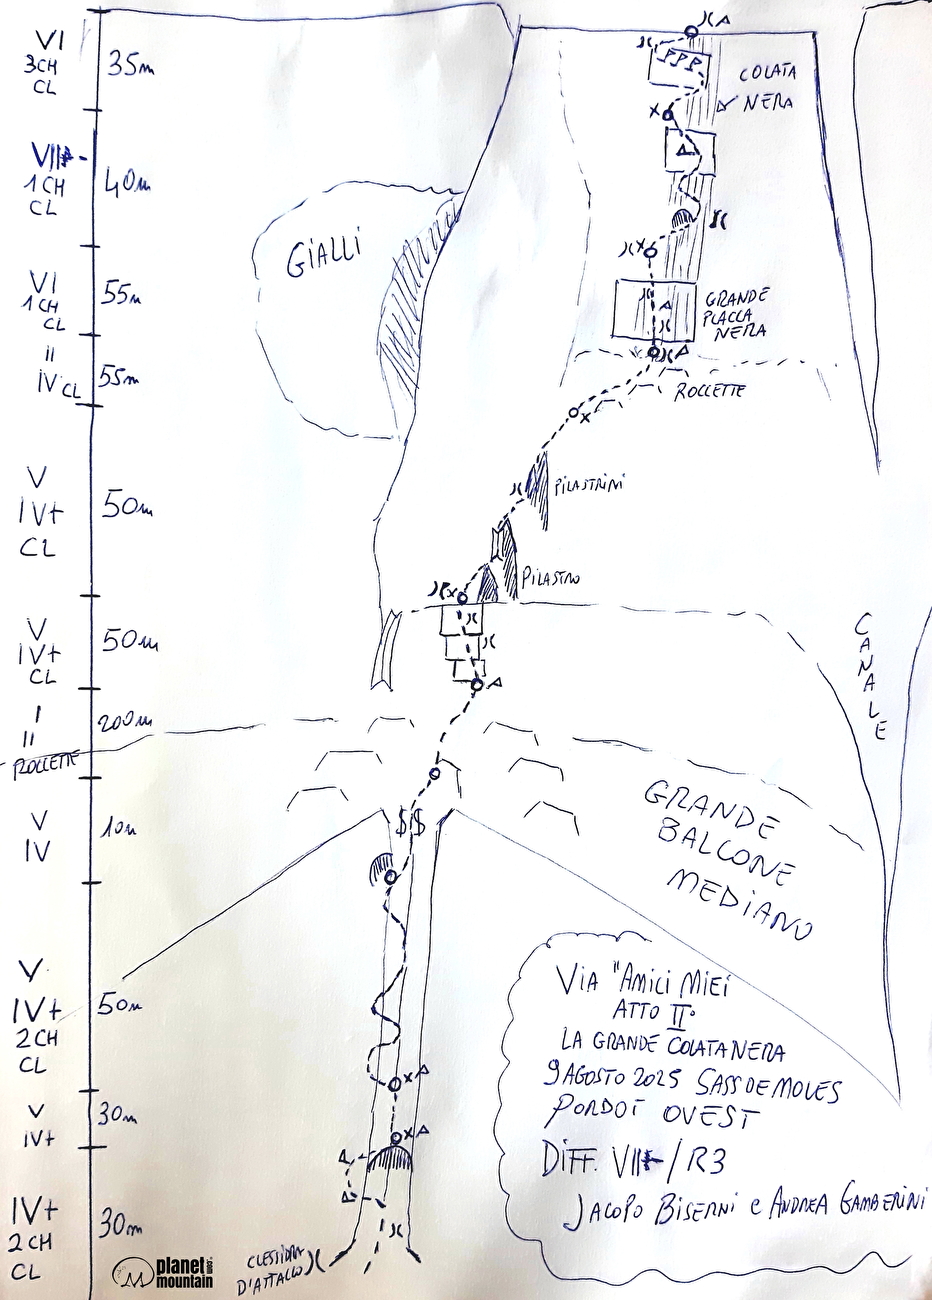 VI
3CH
CL
35m
VII -
1CH
CL
40m
VI
1CH
CL
55m
II
IV CL
55m
V
IV+
CL
50m
V
IV+
CL
50m
I
II
ROCCETTE
200m
V
IV
10m
V
IV+
2CH
CL
50m
V
IV+
30m
IV+
2CH
CL
30m
GIALLI
COLATA
NERA
GRANDE
PLACCA
NERA
ROCCETTE
PILASTRINI
PILASTRO
CANALE
GRANDE
BALCONE
MEDIANO
VIA "AMICI MIEI
ATTO II°
LA GRANDE COLATA NERA
9 AGOSTO 2025 SASS DE MOLES
PORDOI OVEST
DIFF. VII- / R3
JACOPO BISERNI e ANDREA GAMBERINI
CLESSIDRA
D'ATTACCO
planet
mountain